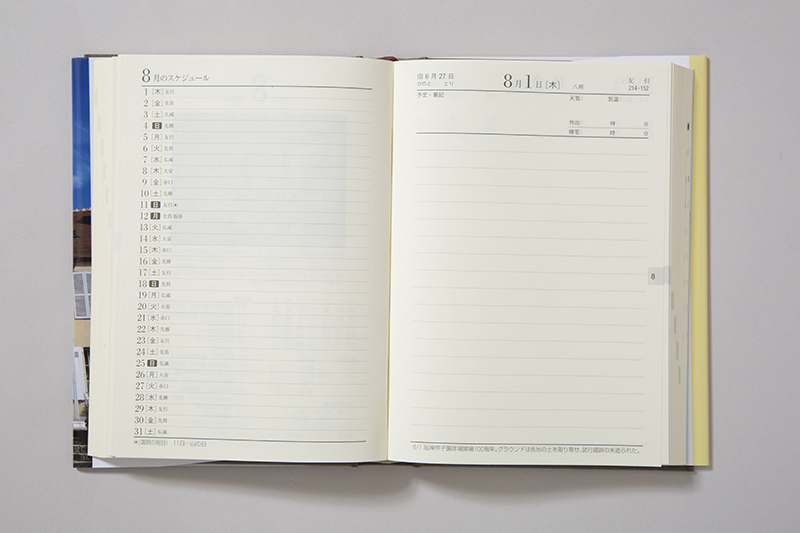 8月のスケジュール
1 [木] 友引
2 [金] 先負
3 [土] 仏滅
4 日 先勝
5 [月] 友引
6 [火] 先負
7 [水] 仏滅
8 [木] 大安
9 [金] 赤口
10 [土] 先勝
11 日 友引 ●
12 月 先負 振休
13 [火] 仏滅
14 [水] 大安
15 [木] 赤口
16 [金] 先勝
17 [土] 友引
18 日 先負
19 [月] 仏滅
20 [火] 大安
21 [水] 赤口
22 [木] 先勝
23 [金] 友引
24 [土] 先負
25 日 仏滅
26 [月] 大安
27 [火] 赤口
28 [水] 先勝
29 [木] 友引
30 [金] 先負
31 [土] 仏滅
(国民の祝日) 11日…山の日
旧 6月 27日 8月1日[木] 八朔 友 引
ひのと とり 214-152
予定・要記 天気: 気温:
外出: 時: 分
帰宅: 時: 分
8
8/1 阪神甲子園球場開場100周年。グラウンドは各地の土を取り寄せ、試行錯誤の末造られた。